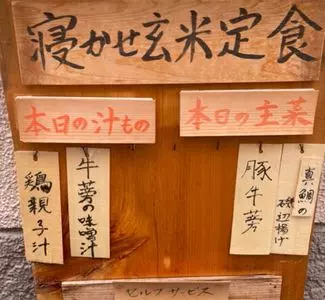 寝かせ玄米定食
本日の汁もの
鶏親子汁
牛蒡の味噌汁
本日の主菜
豚牛蒡
真鯛の
磯辺揚げ
セルフサービス